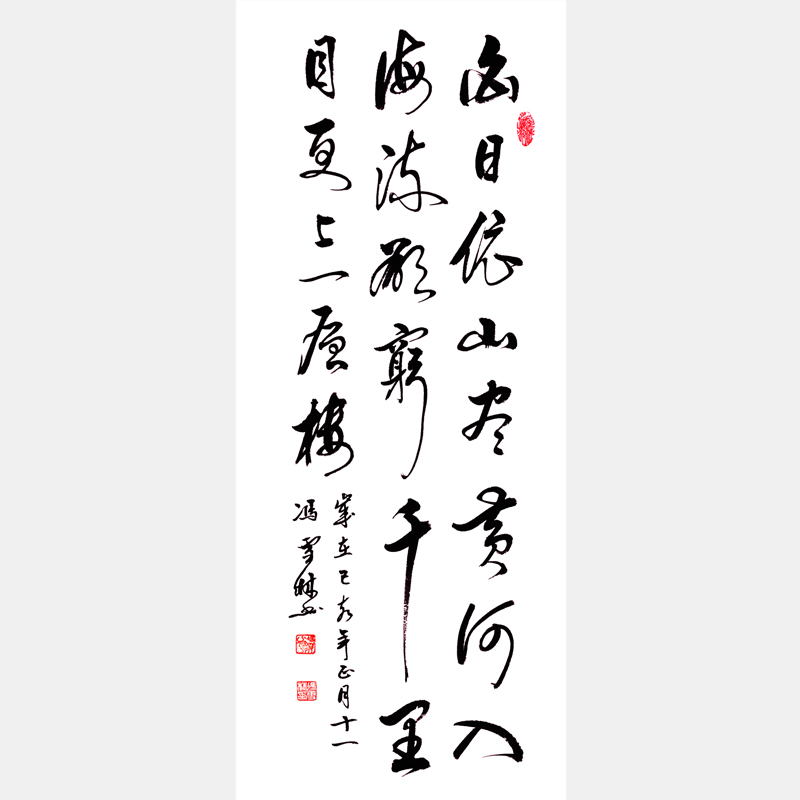 白日依山尽黄河入
海流欲窮千里
目更上一层楼
歲在己亥年正月十一
馮雪林书